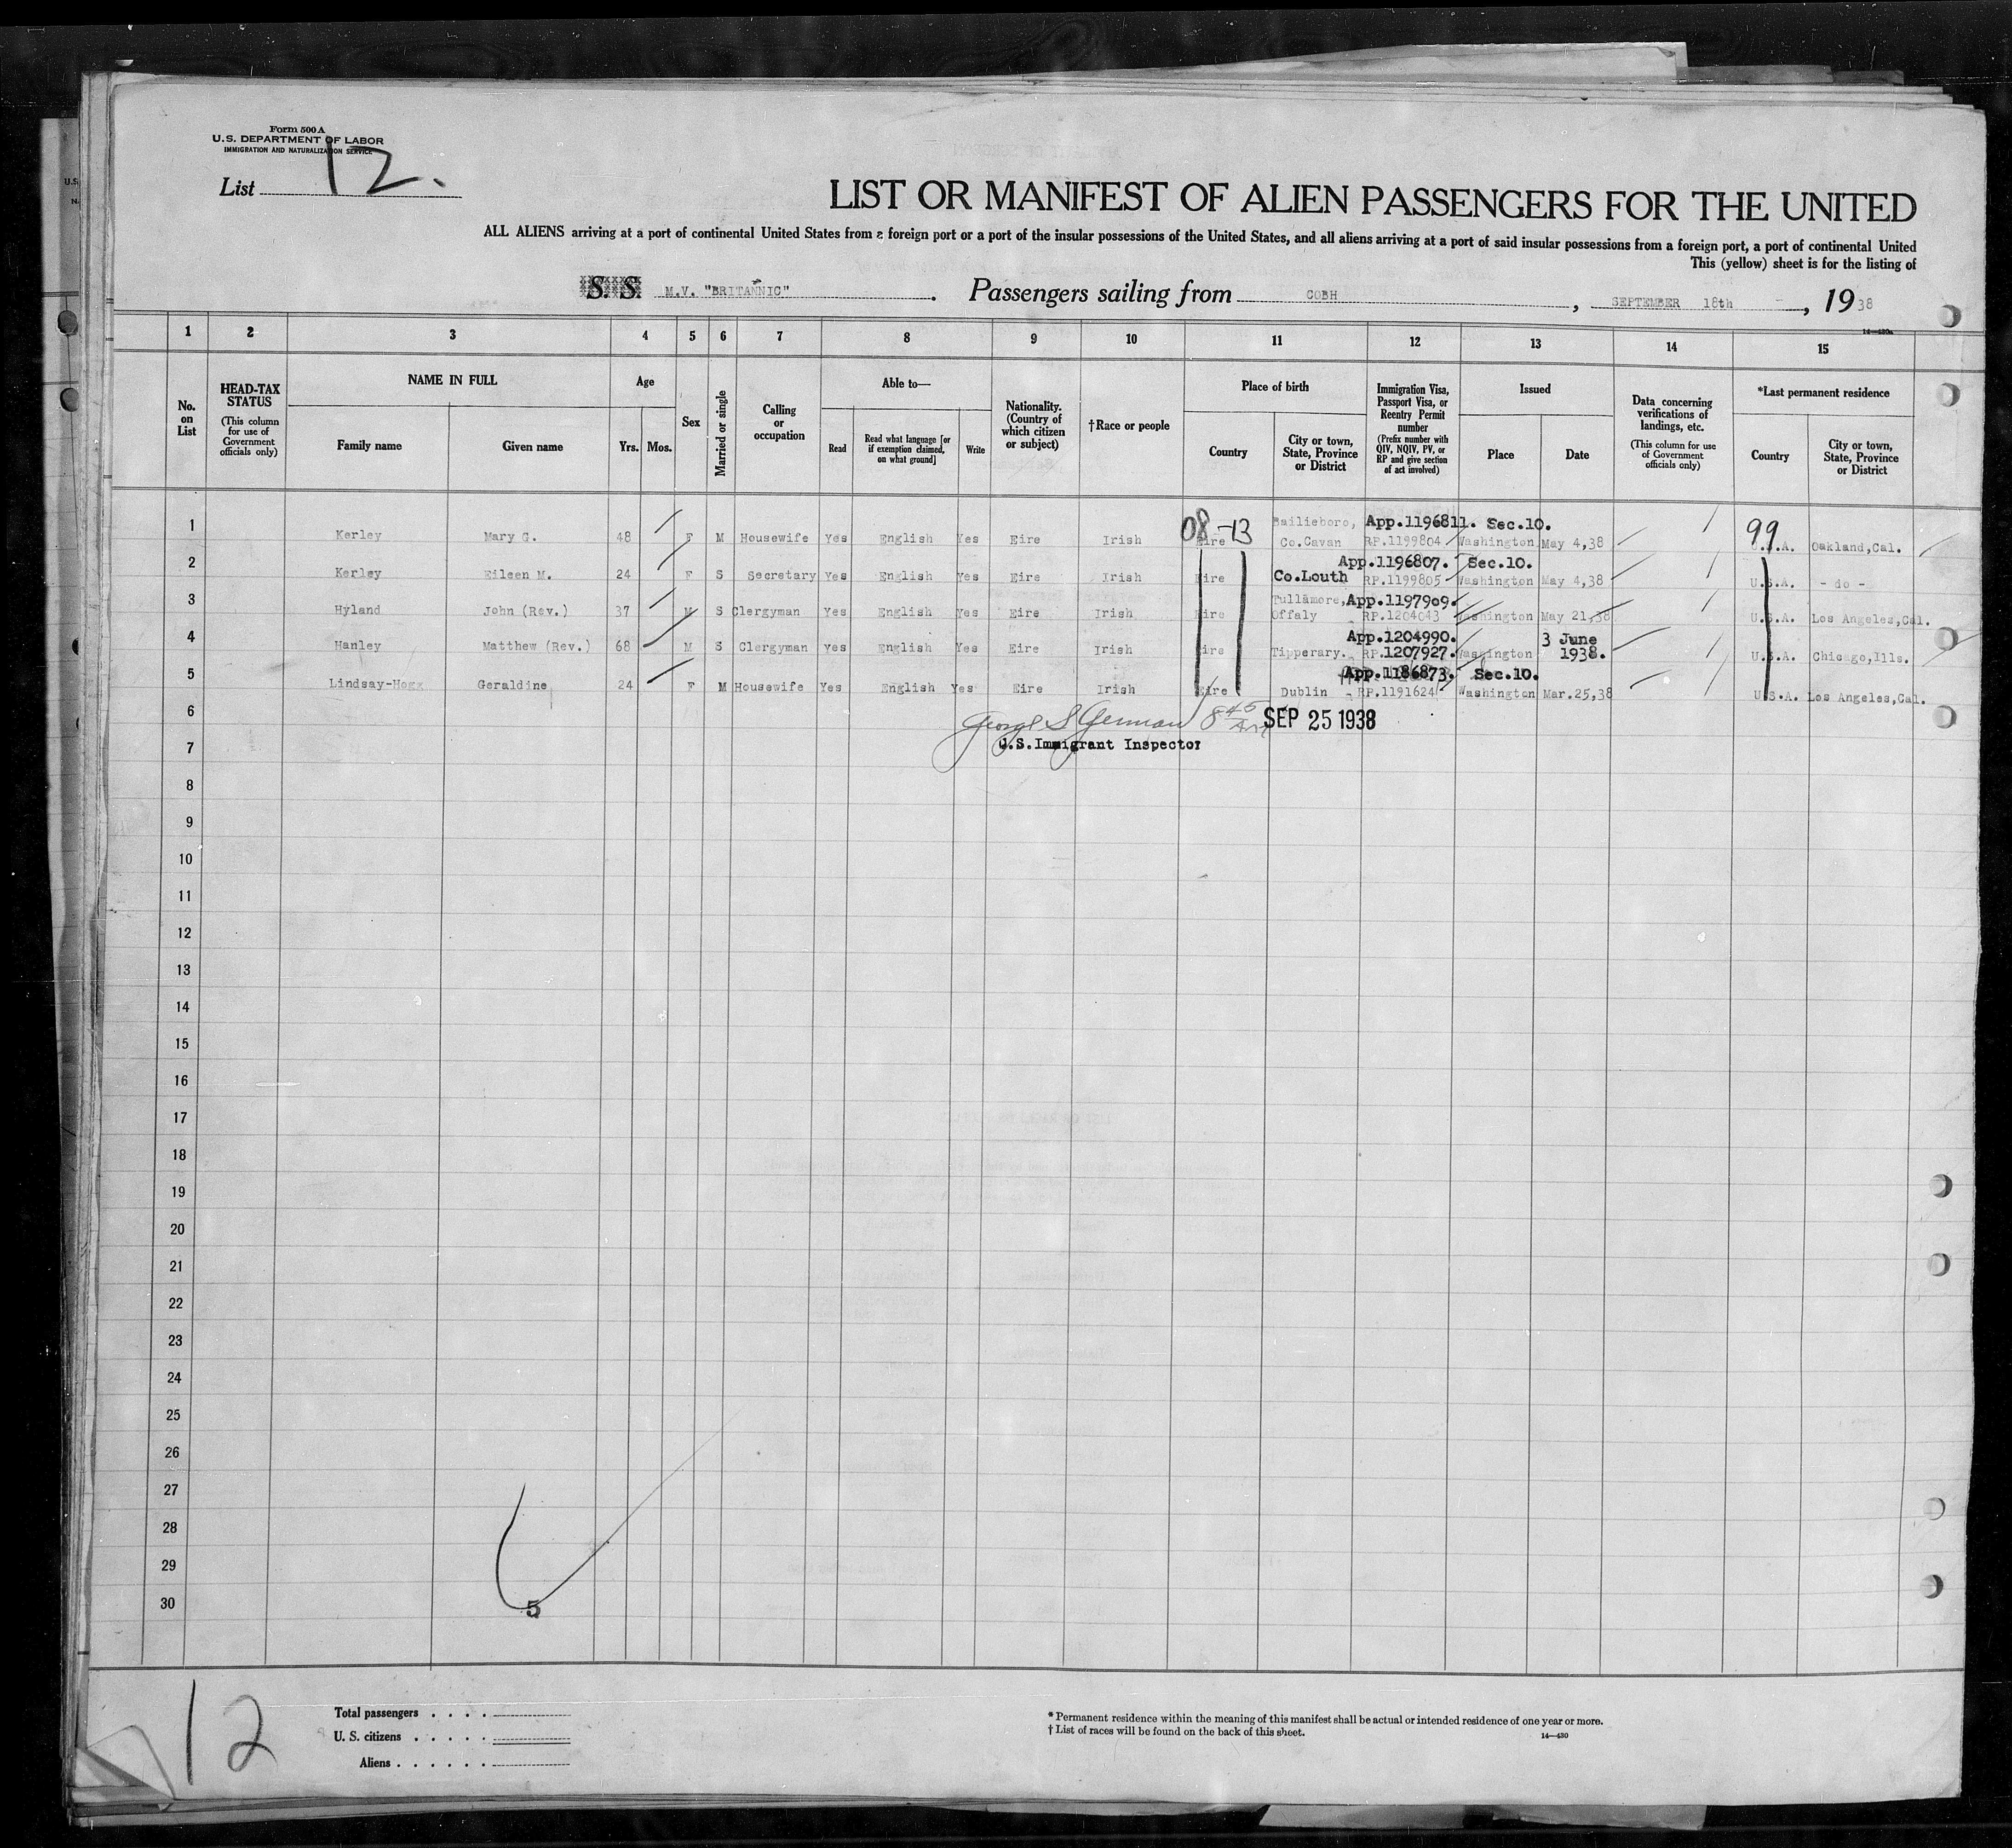 Form 500 A
U.S. DEPARTMENT OF LABOR
IMMIGRATION AND NATURALIZATION SERVICE
List 12.
LIST OR MANIFEST OF ALIEN PASSENGERS FOR THE UNITED
ALL ALIENS arriving at a port of continental United States from a foreign port or a port of the insular possessions of the United States, and all aliens arriving at a port of said insular possessions from a foreign port, a port of continental United
This (yellow) sheet is for the listing of
S. S. M.V. "BRITANNIC" . Passengers sailing from COBH , SEPTEMBER 18th , 19 38
14—430a
1 2 3 4 5 6 7 8 9 10 11 12 13 14 15
No. on List
HEAD-TAX STATUS (This column for use of Government officials only)
NAME IN FULL
Family name Given name
Age
Yrs. Mos.
Sex
Married or single
Calling or occupation
Able to—
Read
Read what language [or if exemption claimed, on what ground]
Write
Nationality. (Country of which citizen or subject)
†Race or people
Place of birth
Country
City or town, State, Province or District
Immigration Visa, Passport Visa, or Reentry Permit number (Prefix number with QIV, NQIV, PV, or RP and give section of act involved)
Issued
Place Date
Data concerning verifications of landings, etc. (This column for use of Government officials only)
*Last permanent residence
Country
City or town, State, Province or District
08-13 Bailieboro, App.1196811. Sec.10. 99
1 Kerley Mary G. 48 F M Housewife Yes English Yes Eire Irish Eire Co.Cavan RP.1199804 Washington May 4,38 U.S.A. Oakland,Cal.
App.1196807. Sec.10.
2 Kerley Eileen M. 24 F S Secretary Yes English Yes Eire Irish Eire Co.Louth RP.1199805 Washington May 4,38 U.S.A. - do -
Tullamore, App.1197909.
3 Hyland John (Rev.) 37 M S Clergyman Yes English Yes Eire Irish Eire Offaly RP.1204043 Washington May 21,38 U.S.A. Los Angeles,Cal.
App.1204990. 3 June
4 Hanley Matthew (Rev.) 68 M S Clergyman Yes English Yes Eire Irish Eire Tipperary. RP.1207927. Washington 1938. U.S.A. Chicago,Ills.
App.1186873. Sec.10.
5 Lindsay-Hogg Geraldine 24 F M Housewife Yes English Yes Eire Irish Eire Dublin RP.1191624 Washington Mar.25,38 U.S.A. Los Angeles,Cal.
6 George S German 8 45 SEP 25 1938
7 U.S.Immigrant Inspector
8
9
10
11
12
13
14
15
16
17
18
19
20
21
22
23
24
25
26
27
28
29
30
5
12
Total passengers . . . .
U. S. citizens . . . . .
Aliens . . . . . .
* Permanent residence within the meaning of this manifest shall be actual or intended residence of one year or more.
† List of races will be found on the back of this sheet.
14—430